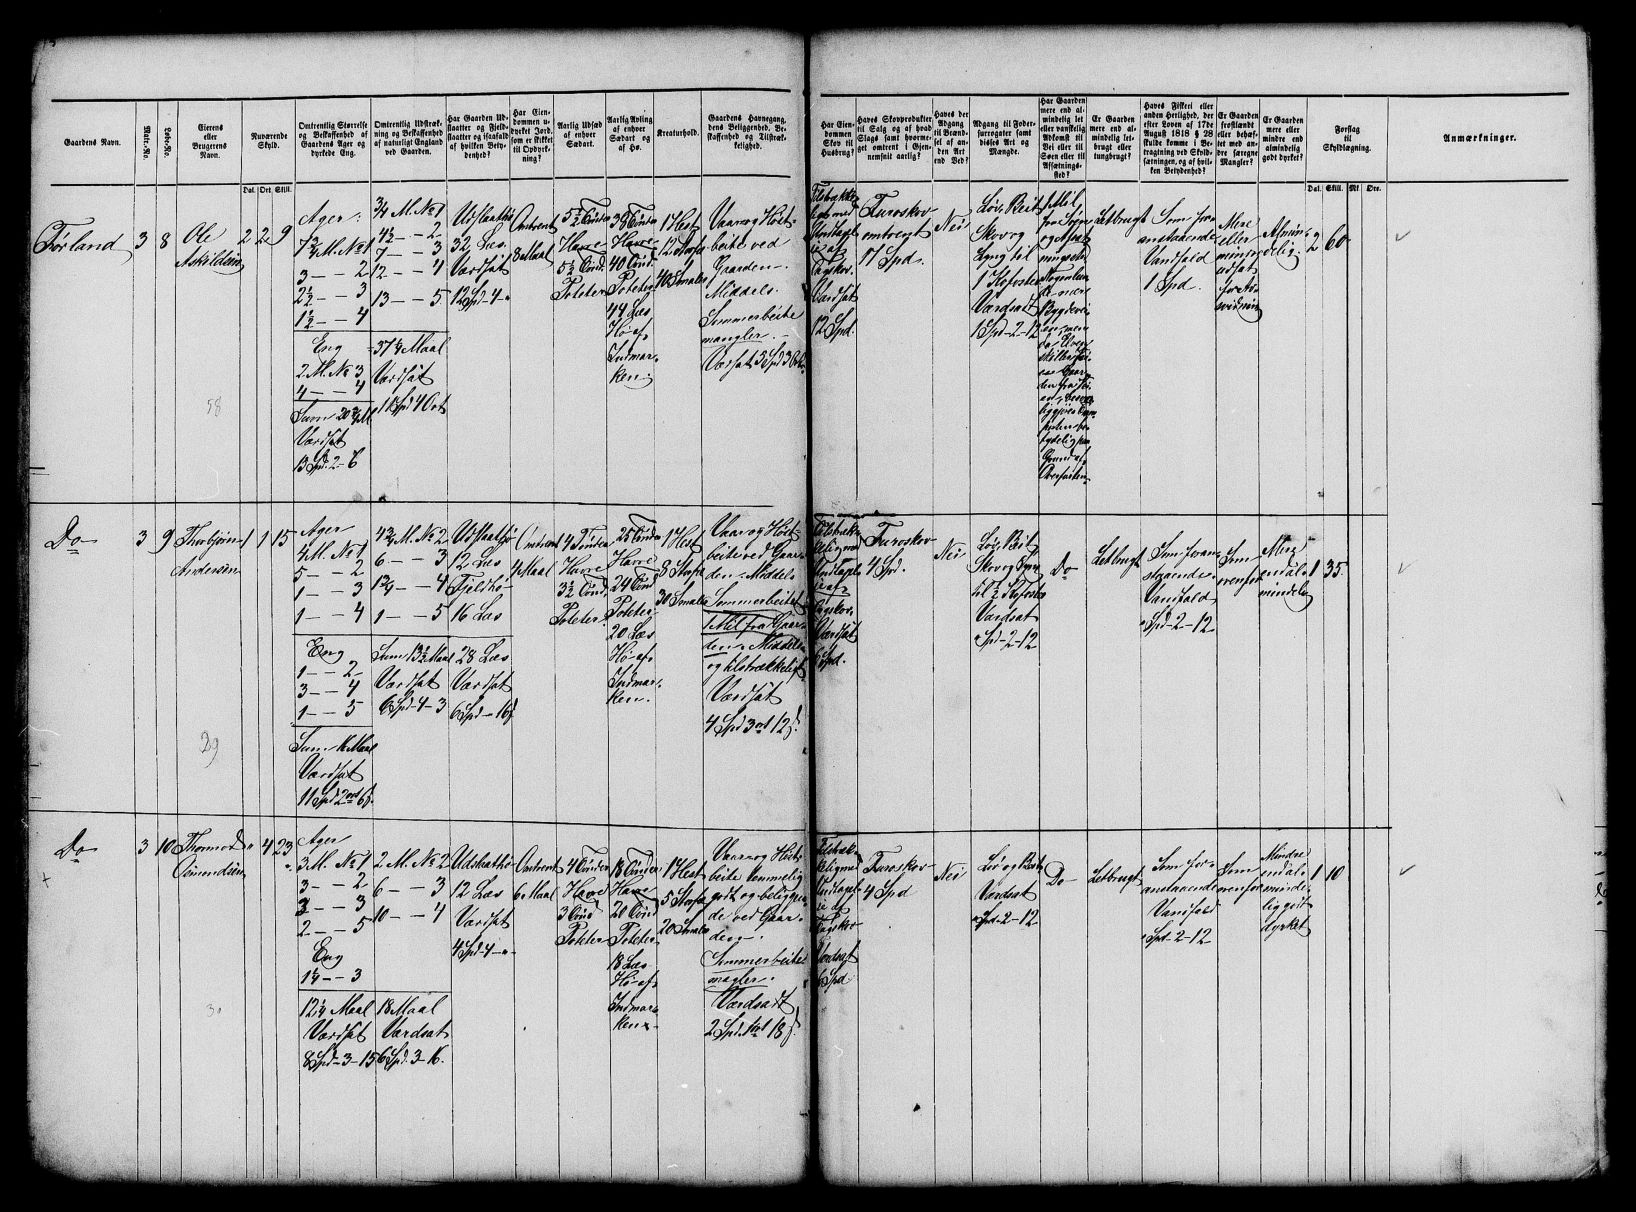 Gaardens Navn.
Matr.-No.
Løbe-No.
Eierens eller Brugerens Navn.
Nuværende Skyld.
Dal. Ort. Skill.
Omtrentlig Størrelse og Beskaffenhed af Gaardens Ager og dyrkede Eng.
Omtrentlig Udstrækning og Beskaffenhed af naturligt England ved Gaarden.
Har Gaarden Udslaatter og Fjeldslaatter og isaafald af hvilken Betydenhed?
Har Eiendommen udyrket Jord, som er skikket til Opdyrkning?
Aarlig Udsæd af enhver Sædart.
Aarlig Avling af enhver Sædart og af Hø.
Kreaturhold.
Gaardens Havnegang, dens Beliggenhed, Beskaffenhed og Tilstrækkelighed.
Har Eiendommen Skov til Husbrug?
Haves Skovprodukter til Salg og af hvad Slags samt hvormeget omtrent i Gjennemsnit aarlig?
Haves der Adgang til Brændsel af anden Art end Ved?
Adgang til Fodersurrogater samt disses Art og Mængde.
Har Gaarden mere end almindelig let eller vanskelig Adkomst til Vei eller til Søen eller til Afsætningssted?
Er Gaarden mere end almindelig letbrugt eller tungbrugt?
Haves Fiskeri eller anden Herlighed, der efter Loven af 17de August 1818 § 28 skulde komme i Betragtning ved Skyldsætningen, og af hvilken Betydenhed?
Er Gaarden frostlændt eller behæftet med andre særegne Mangler?
Er Gaarden mere eller mindre end almindelig godt dyrket?
Forslag til Skyldlægning.
Dal. Skill. Mk Øre.
Anmærkninger.
Førland 3 8 Ole
Askildsen
2 2 9
Ager:
7¾ M. No 1
3 — — 2
2½ — — 3
1½ — — 4
Eng
2 M. No 3
4 — — 4
Sum 20¾ M
Værdsat
13 Spd. 2 - 6
¾ M. No 1
4½ — — 2
7 — — 3
12 — — 4
13 — — 5
= 37¼ Maal
Værdsat
11 Spd 4 Ort
Udslaathø
32 Læs
Værdsat
12 Spd - 4 - "
Omtrent
8 Maal
5½ Tønder
Havre
5½ Tønd.
Poteter
38 Tønder
Havre
40 Tønd
Poteter
44 Læs
Hø af
Indmar-
ken
1 Hest
12 Storfæ
40 Smaler
Vaar og Høst-
beite ved
Gaarden
Middels
Sommerbeite
mangler
Værdsat 3 Spd 3 Ort
Tilstrække-
lig med
Værdsat
12 Spd.
Furoskov
omtrent
17 Spd.
Nei
Løv, Beit
Skov og
Lyng til
1 Kofoster
Værdsat
1 Spd - 2 - 12
Letbrugt
Som foran-
anstaaende
Vandfald
1 Spd.
Mere
eller
Almin-
delig
2 60
58
Do 3 9 Thorbjørn
Andersen
1 1 15
Ager
4 M. No 1
5 — — 2
1 — — 3
1 — — 4
Eng
1 — — 2
3 — — 4
1 — — 5
Værdsat
11 Spd 2 ort 6 ß
4¾ M. No 2
6 — — 3
1¾ — — 4
1 — — 5
Sum 13½ Maal
Værdsat
6 Spd - 4 - 3
Udslaathø
12 Læs
Fjeldhø
16 Læs
28 Læs
Værdsat
6 Spd - 16 ß
Omtrent
4 Maal
4 Tønder
Havre
3½ Tønd.
Poteter
25 Tønder
Havre
24 Tønd
Poteter
20 Læs
Hø af
Indmar-
ken.
1 Hest
8 Storfæ
30 Smaler
Vaar og Høst-
beite ved Gaar-
den Middels
Sommerbeitet
1 Mil fra Gaar-
den Middels
og tilstrækkeligt
Værdsat
4 Spd 3 ort 12 ß
Værdsat
6 Spd.
Furoskov
4 Spd.
Nei
Løv, Beit
Skov og Lyng
til ½ Kofoster
Værdsat
" Spd - 2 - 12
Do
Letbrugt
Som foran-
staaende
Vandfald
" Spd - 2 - 12
Som
ovenfor
Mere
end al-
mindelig
1 35
Do 3 10 Thormod
Osmundsen
" 4 23
Ager
3 M. No 1
3 — — 2
3 — — 3
2 — — 5
Eng
1¼ — — 3
12¼ Maal
Værdsat
8 Spd - 3 - 15
2 M. No 2
6 — — 3
10 — — 4
18 Maal
Værdsat
6 Spd. 3 - 16.
Udslaathø
12 Læs
Værdsat
4 Spd - 4 - "
Omtrent
6 Maal
4 Tønder
Havre
3 Tønd
Poteter
18 Tønder
Havre
20 Tønd
Poteter
18 Læs
Hø af
Indmar-
ken
1 Hest
5 Storfæ
20 Smaler
Vaar og Høst-
beite temmelig
godt og beliggen-
de ved Gaar-
den
Sommerbeite
mangler
Værdsadt
2 Spd. 1 ort 18 ß
Værdsat
6 Spd
Furoskov
4 Spd
Nei
Løv og Beit
Værdsat
" Spd - 2 - 12
Do
Letbrugt
Som for-
anstaaende
Vandfald
" Spd - 2 - 12
Som
ovenfor
Mindre
end al-
minde-
lig godt
dyrket
1 10